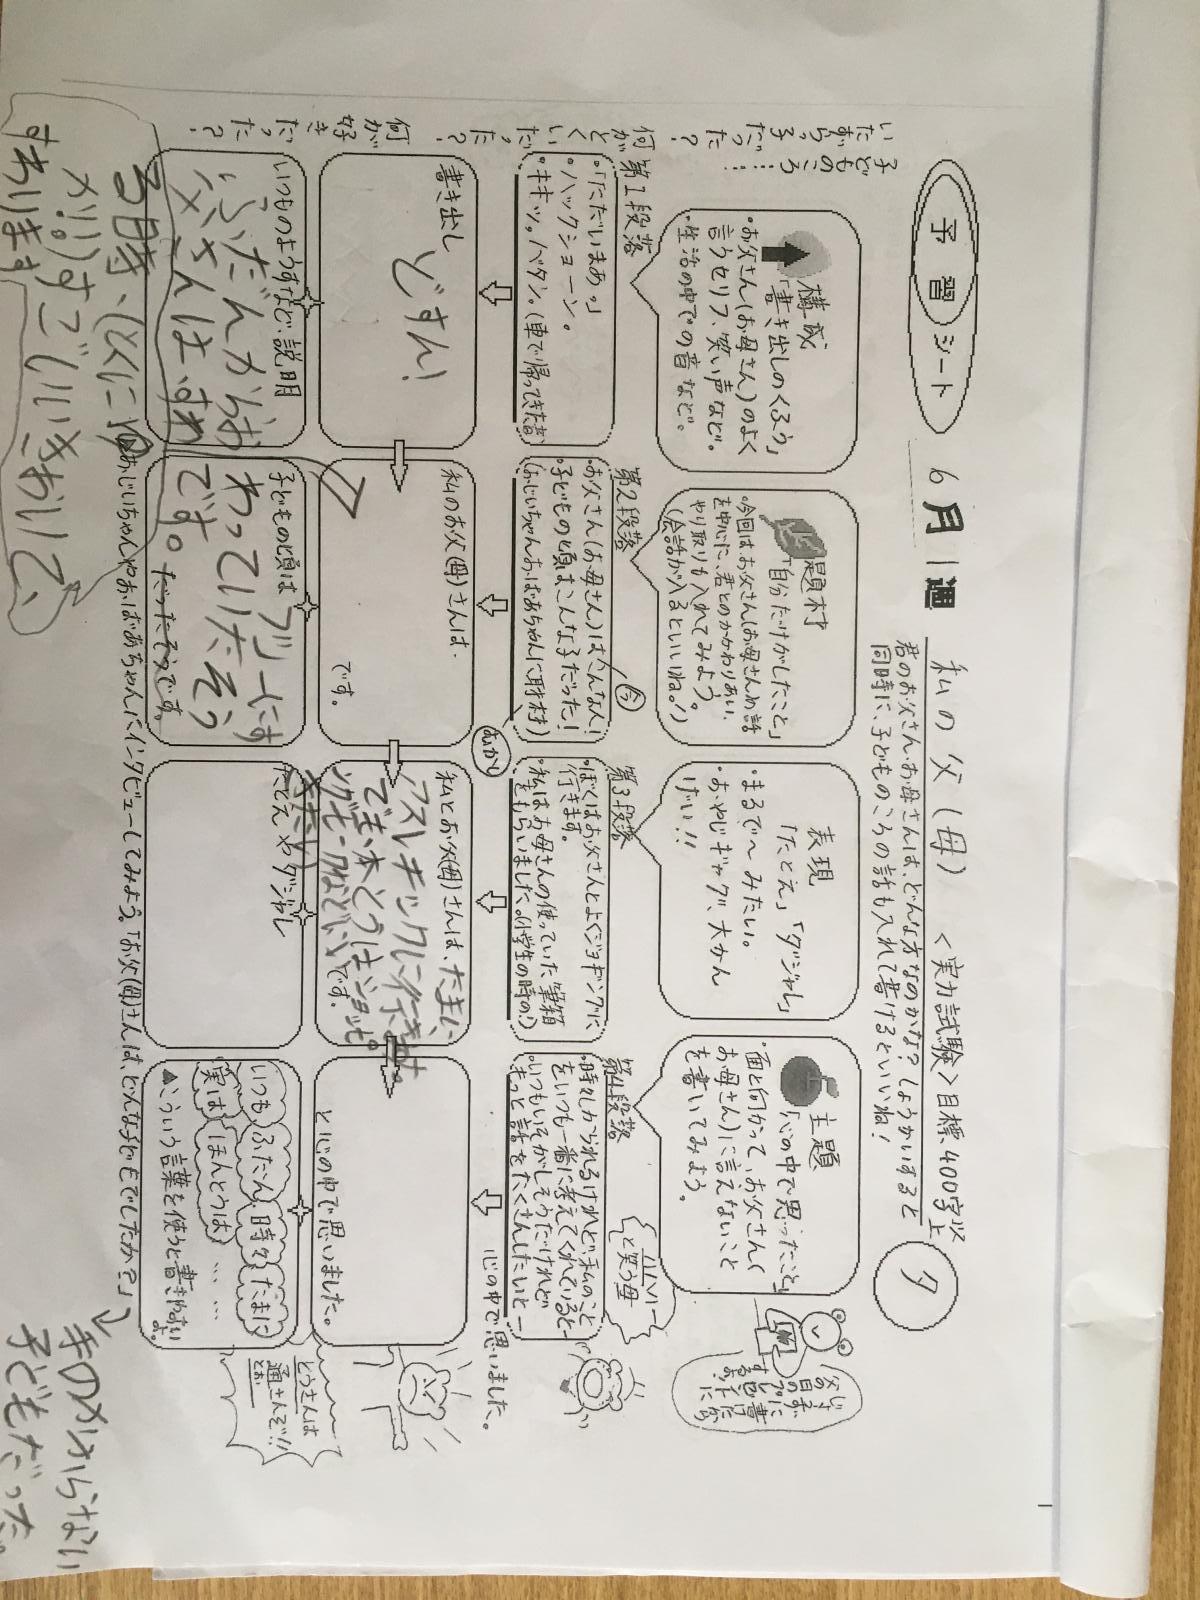 予習シート
6月1週
私の父(母) <実力試験>目標400字以上
夕
君のお父さん、お母さんは、どんな方なのかな?しょうかいすると
同時に、子どものころの話も入れて書けるといいね!
構成
「書き出しのくふう」
・お父さん(お母さん)のよく
言うセリフ、笑い声など。
・生活の中での音など。
題材
「自分だけがしたこと」
・今回は、お父さん(お母さん)の話
を中心に、君とのかかわりあい、
やり取りも入れてみよう。
(会話が入るといいね。!)
表現
「たとえ」「ダジャレ」
・まるで〜みたい。
・おやじギャグ、大かん
げい!!
主題
「心の中で思ったこと」
・面と向かって、お父さん(
お母さん)に言えないこと
を書いてみよう。
父の日のプ
ハハハハー
と笑う母
子どものころ…
いたずらっ子だった?
何がとくいだった?
何が好きだった?
第1段落
・「ただいまあ。」
・ハックショーン。
・キキッ。バタン。(車で帰ってきた音)
第2段落
・お父さん(お母さん)はこんな人!
今
・子どもの頃はこんな子だった!
(おじいちゃんおばあちゃんに取材)
むかし
第3段落
・ぼくはお父さんとよくジョギングに
行きます。
・私はお母さんの使っていた筆箱
をもらいました。(小学生の時の!)
第4段落
・時々しかられるけれど、私のこと
をいつも一番に考えてくれていると
・いつもいそがしそうだけれど
もっと話をたくさんしたいと
心の中で思いました。
書き出し
どすん!
私のお父(母)さんは、
です。
私とお父(母)さんは、たまに、
アスレチックに行きます。
でも、本とうは、
です。
と心の中で思いました。
いつものようすなど、説明
ふだんからお
父さんは、すわ
る時、(とくに
が!!)すごいいきおいで、
すわります
子どもの頃は フツーにす
わっていたそう
です。
だったそうです。
たとえやダジャレ
いつも ふだん、時々 たまに
実は ほんとうは ……
▲こういう言葉を使うと書きやすいよ。
とうさんは
通さんぞ!!
とお
おじいちゃんやおばあちゃんにインタビューしてみよう。「お父(母)さんは、どんな子どもでしたか?」
手のかからない
子どもだった。